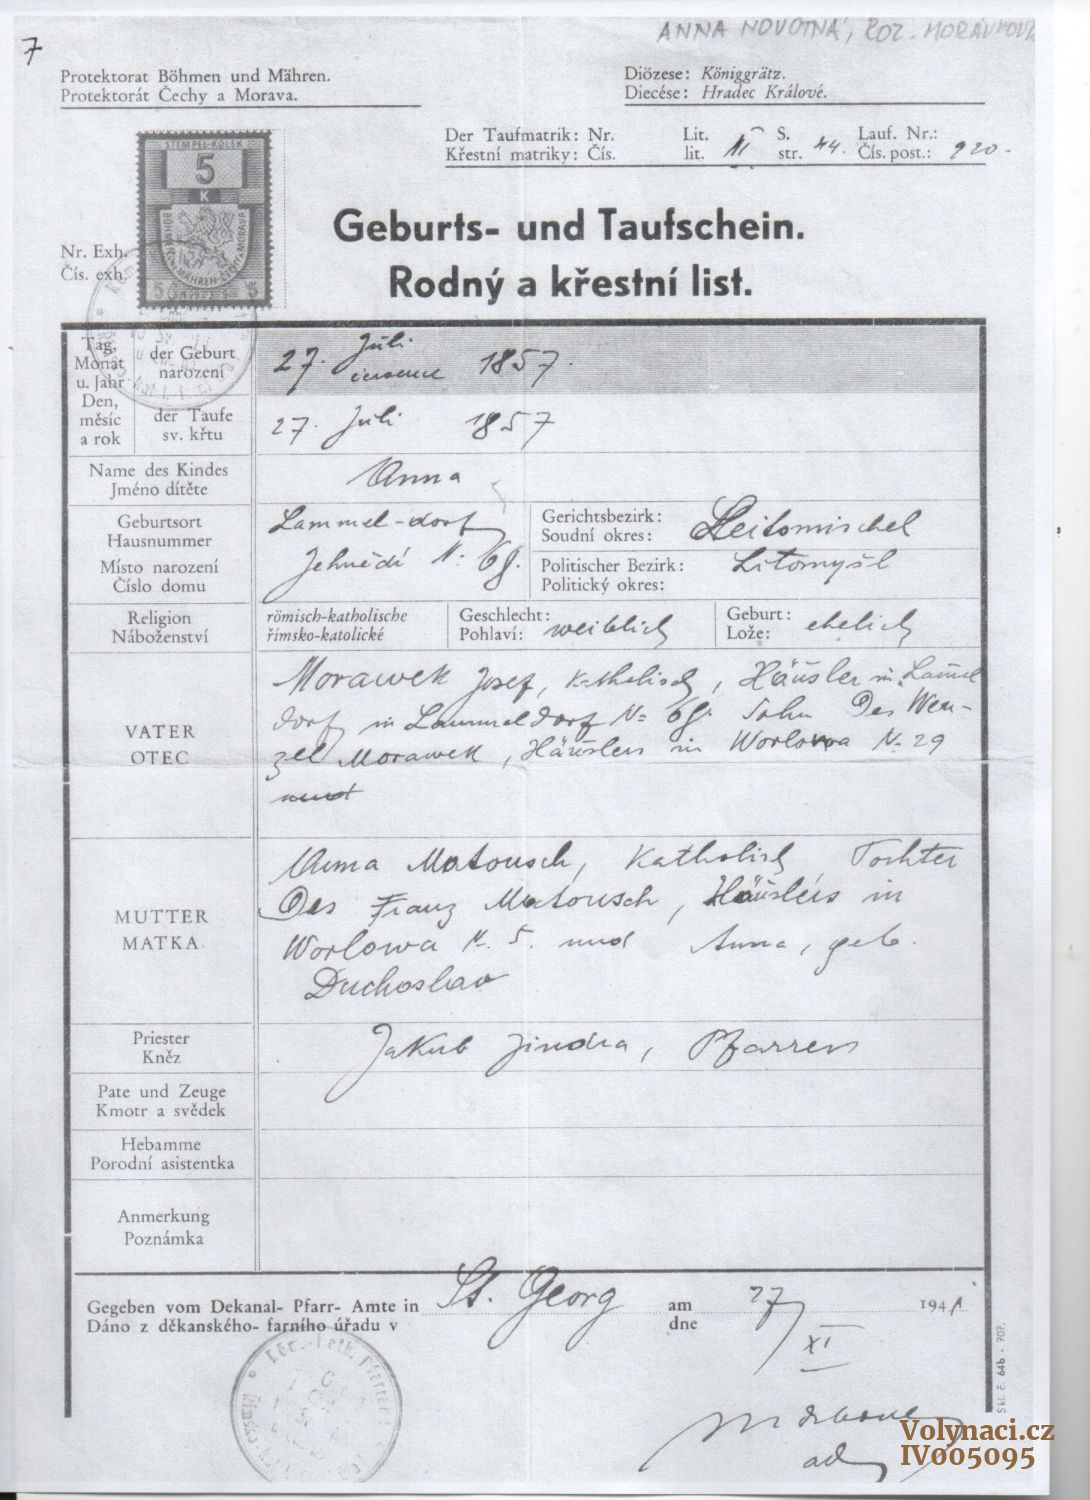 7
ANNA NOVOTNÁ, ROZ. MORÁVKOVÁ
Protektorat Böhmen und Mähren.
Protektorát Čechy a Morava.
Diözese: Königgrätz.
Diecése: Hradec Králové.
Der Taufmatrik: Nr. Lit. S. Lauf. Nr.:
Křestní matriky: Čís. lit. III str. 44. Čís. post.: 920.
STEMPEL-KOLEK
5
K
BÖHMEN U. MÄHREN-ČECHY A MORAVA
5 5
Geburts- und Taufschein.
Rodný a křestní list.
Nr. Exh.
Čís. exh.
Tag, Monat u. Jahr
Den, měsíc a rok
der Geburt
narození
27. Juli
července 1857.
der Taufe
sv. křtu
27. Juli 1857
Name des Kindes
Jméno dítěte
Anna
Geburtsort
Hausnummer
Místo narození
Číslo domu
Lammel-dorf
Jehnědí N. 68.
Gerichtsbezirk:
Soudní okres:
Leitomischel
Politischer Bezirk:
Politický okres:
Litomyšl
Religion
Náboženství
römisch-katholische
římsko-katolické
Geschlecht:
Pohlaví: weiblich
Geburt:
Lože: ehelich
VATER
OTEC
Morawek Josef, katholisch, Häusler in Lammel
dorf in Lammeldorf N= 68. Sohn Des Wen-
zel Morawek, Häuslers in Worlowa N. 29
und
MUTTER
MATKA
Anna Matousch, Katholisch Tochter
Des Franz Matousch, Häuslers in
Worlowa N. 5. und Anna, geb.
Duchoslav
Priester
Kněz
Jakub Jindra, Pfarrer
Pate und Zeuge
Kmotr a svědek
Hebamme
Porodní asistentka
Anmerkung
Poznámka
Gegeben vom Dekanal- Pfarr- Amte in St. Georg am 27 1941
Dáno z děkanského- farního úřadu v dne XI
Skl. č. 64b - 707.
Volynaci.cz
IV005095